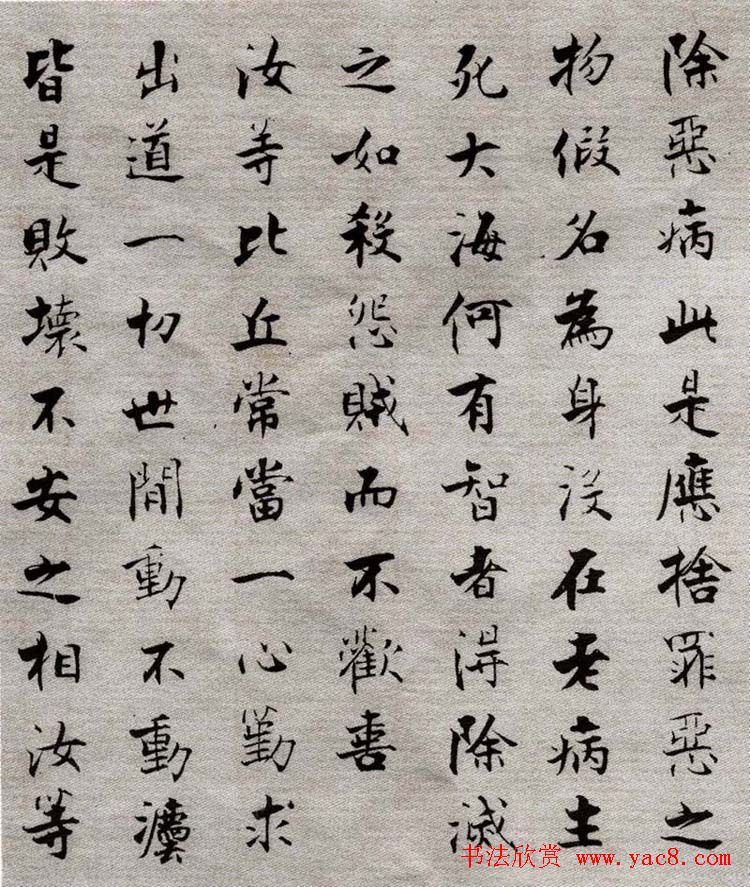 除惡病此是應捨罪惡之
物假名為身没在老病生
死大海何有智者得除滅
之如殺怨賊而不歡喜
汝等比丘常當一心勤求
出道一切世間動不動灋
皆是敗壞不安之相汝等
书法欣赏 www.yac8.com